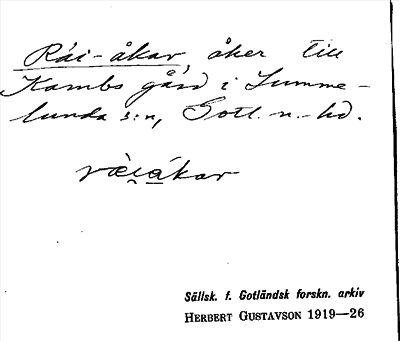 Rái-åkar, åker till
Kambs gård i Lumme-
lunda s:n, Gotl. n.-hd.
ræ̀i̯ákar
Sällsk. f. Gotländsk forskn. arkiv
HERBERT GUSTAVSON 1919—26